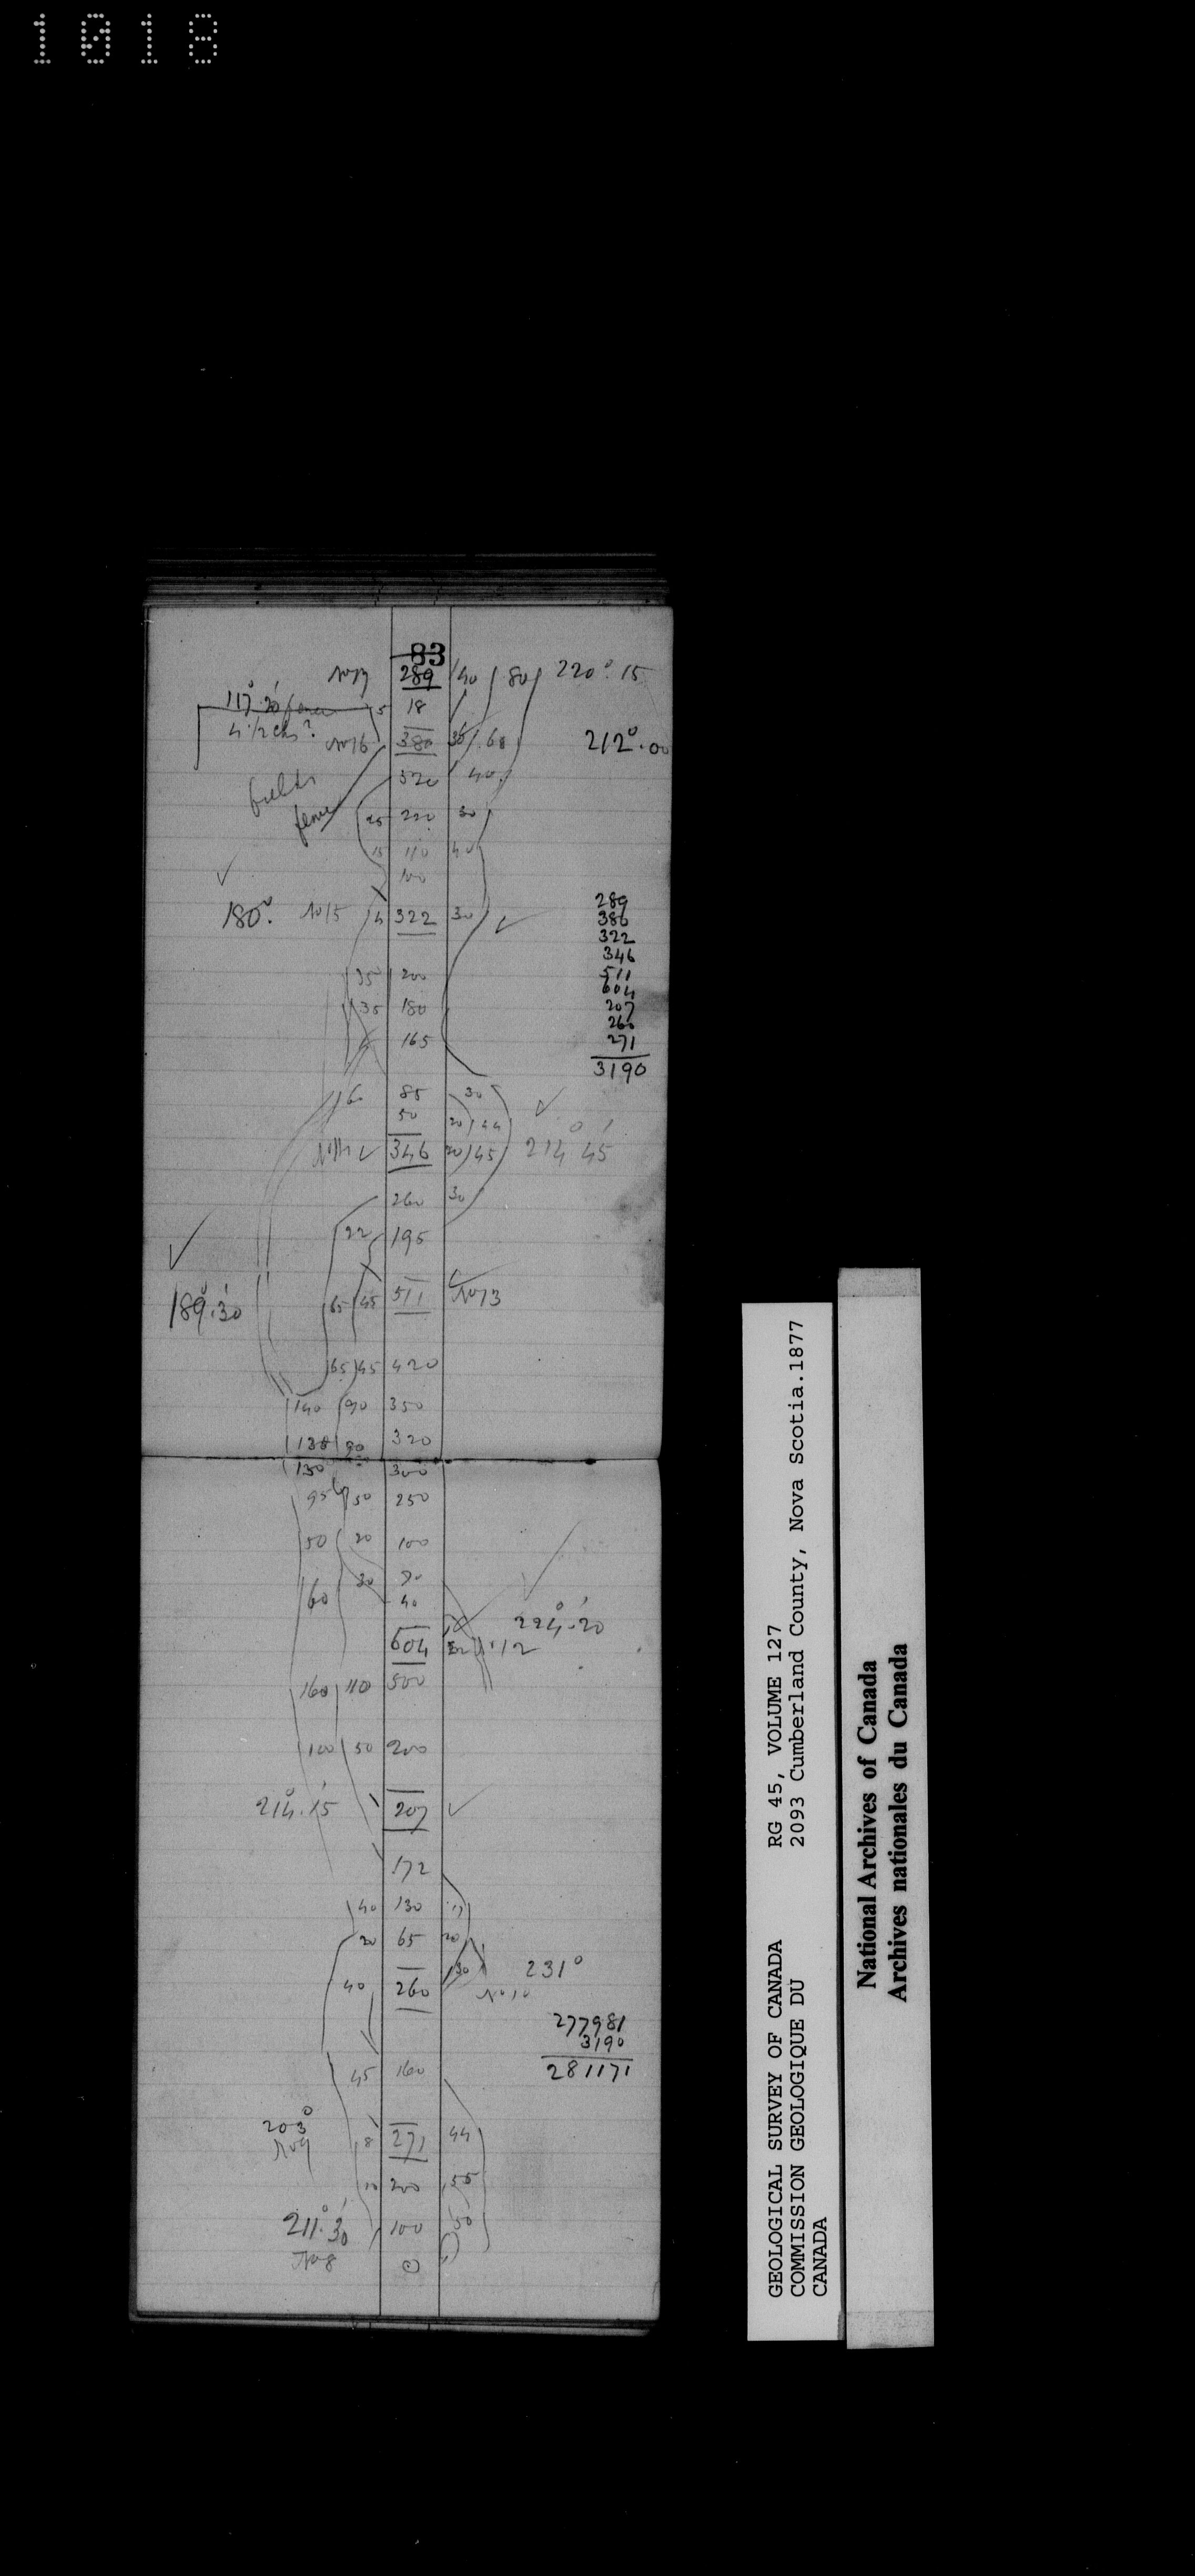 1018
83
No 17 289 40 80 220° 15
117° 5 18
4 1/2 chs? No 16 380 35 60 212°.00
fields 320 40
fence 25 220 30
15 110 40
100
180° No 15 4 322 30
289
386
322
346
511
604
207
260
271
3190
35 200
35 180
165
60 85 30
50 20 44
346 20 45 214° 45'
260 30
22 195
189°.30' 65 45 511 No 13
65 45 420
140 90 350
138 90 320
130 300
95 50 250
50 20 100
60 30 70
40
604 12 224°.20'
160 110 500
100 50 200
214°.15' 207
172
40 130 17
20 65 20
40 260 30 231°
No 10
277981
3190
281171
45 160
203° 8 271 44
No 9
10 200 55
211°.30' 100 50
No 8 0
GEOLOGICAL SURVEY OF CANADA RG 45, VOLUME 127
COMMISSION GEOLOGIQUE DU 2093 Cumberland County, Nova Scotia.1877
CANADA
National Archives of Canada
Archives nationales du Canada